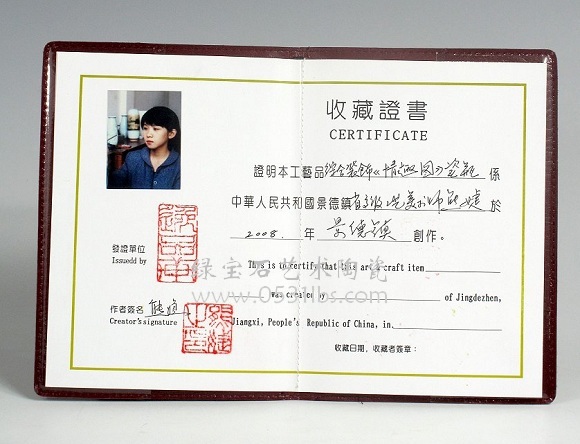 收藏證書
CERTIFICATE
證明本工藝品綜合裝飾《情 图》瓷瓶 係
中華人民共和國景德鎮 美术师熊婕 於
2008. 年 景德镇 創作。
發證單位
Issuedd by
This is to certify that this art&craft item
绿宝石艺术陶瓷
www.0531lbs.com
was created by of Jingdezhen,
作者簽名 熊婕
Creator's signature Jiangxi, People's Republic of China, in.
收藏日期、收藏者簽章：